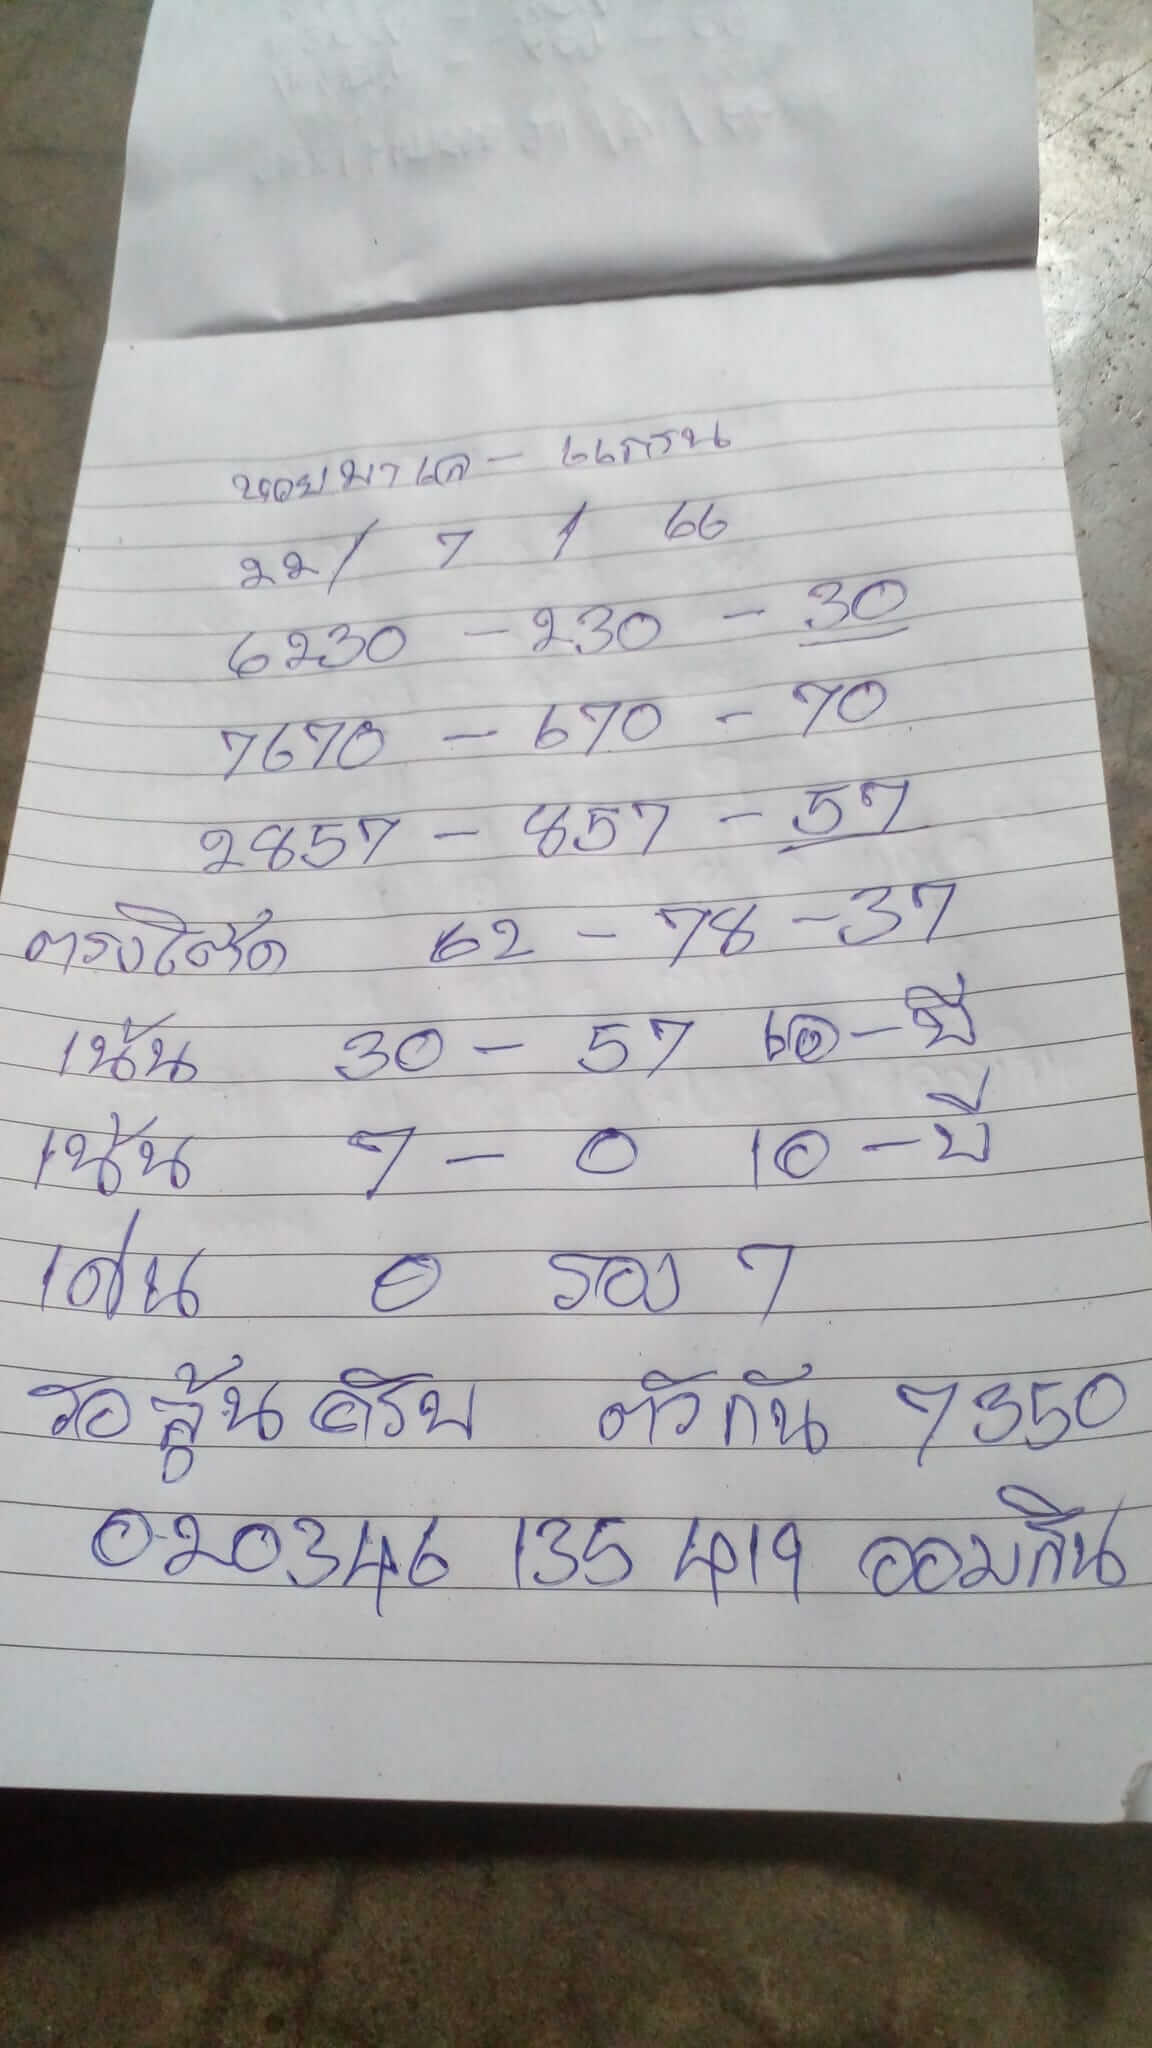 หวยมาเล - แกรน
22 / 7 / 66
6230 - 230 - 30
7670 - 670 - 70
2857 - 857 - 57
ตรงโต๊ด 62 - 78 - 37
เน้น 30 - 57 เอ - บี
เน้น 7 - 0 เอ - บี
เด่น 0 รอง 7
รอลู้นคริบ ตัวกัน 7350
020346 135 419 ออมกิน